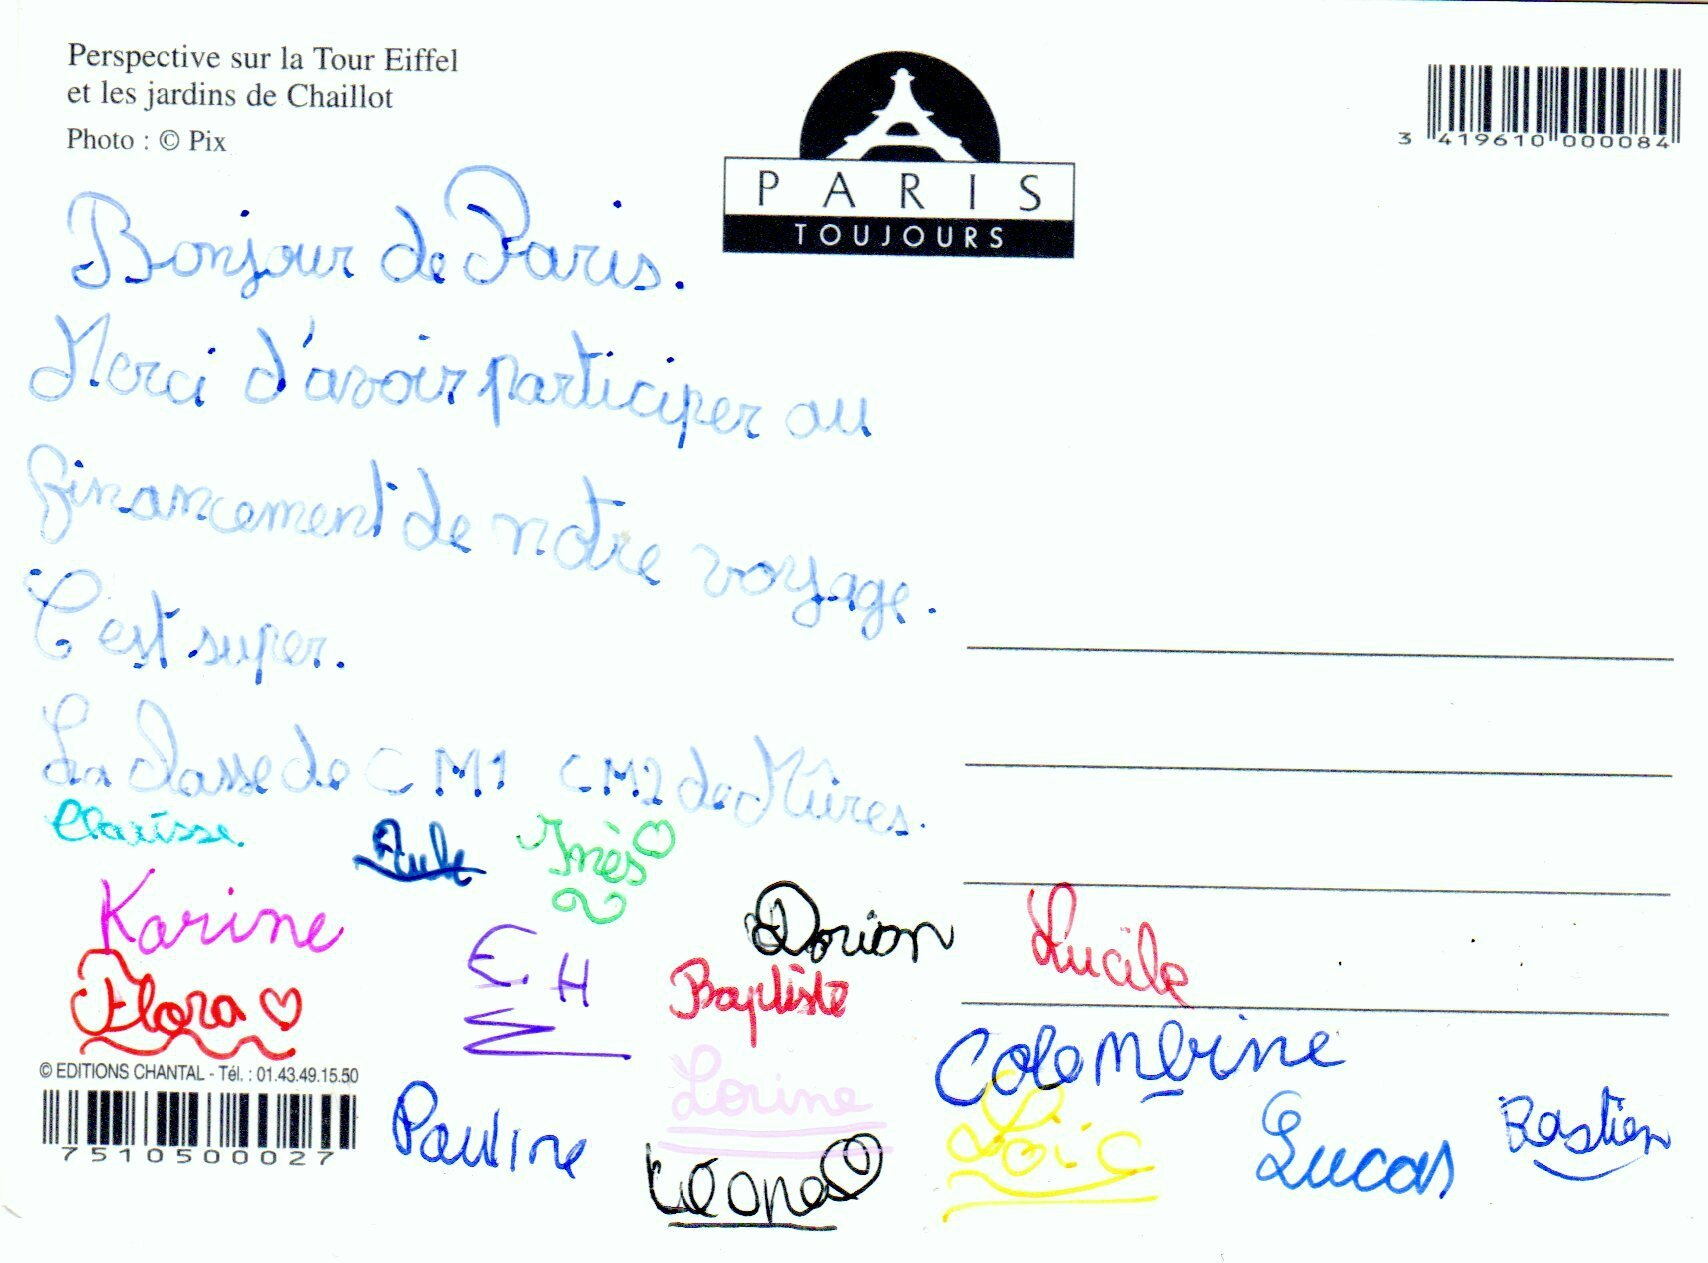 Perspective sur la Tour Eiffel
et les jardins de Chaillot
Photo : © Pix
PARIS
TOUJOURS
3 419610 000084
Bonjour de Paris.
Merci d'avoir participer au
financement de notre voyage.
C'est super.
La classe de CM1 CM2 de Mûres.
Clarisse
Inès
Karine
Dorian
Lucile
Flora
E.H
Baptiste
© EDITIONS CHANTAL - Tél. : 01.43.49.15.50
Colombine
Lorine
7510500027
Pauline
Léona
Loïc
Lucas
Bastien